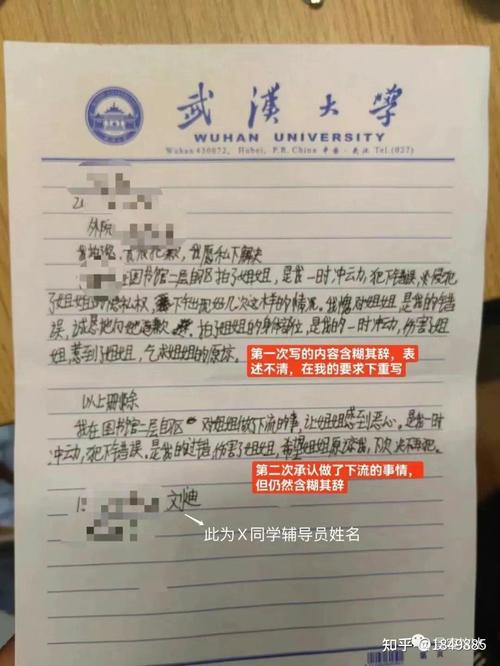 武漢大學
WUHAN UNIVERSITY
Wuhan 430072, Hubei, P.R.China 中国·武汉 Tel.(027)
外院
我愿私下解决
图书馆二层自区拍了姐姐,是我一时冲动,犯下错误,
了姐姐的隐私权,
误,诚恳地向她道歉
拍了姐姐的身体部位,是我的一时冲动,伤害了姐
姐,惹到了姐姐,乞求姐姐的原谅。
第一次写的内容含糊其辞,表
述不清,在我的要求下重写
以上删除
我在图书馆二层自区 对姐姐做了下流的事,让姐姐感到恶心。是我一时
冲动,犯下错误。是我的过错,伤害了姐姐,希望姐姐原谅我,下次决不再犯。
第二次承认做了下流的事情,
但仍然含糊其辞
文迪
此为X同学辅导员姓名
知乎 @1849885